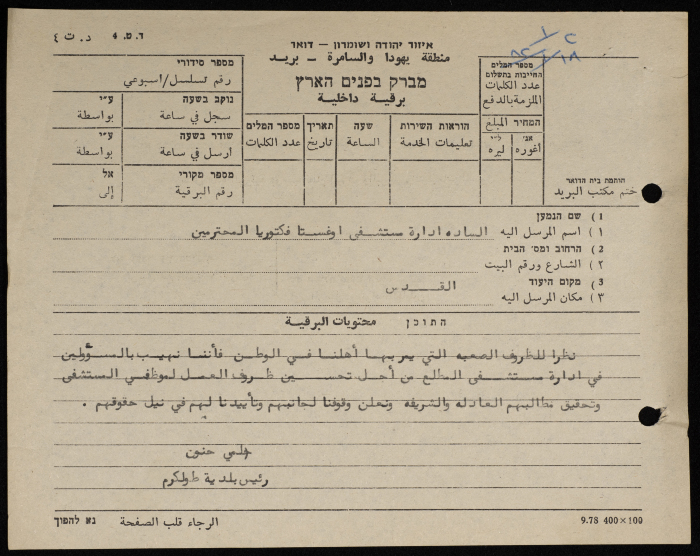 ד. ת 4 د. ت ٤
איזור יהודה ושומרון – דואר
منطقة يهودا والسامرة – بريد
מברק בפנים הארץ
برقية داخلية
מספר סידורי
رقم تسلسل/اسبوعي
נוקב בשעה ע״י
سجل في ساعة بواسطة
שודר בשעה ע״י
ارسل في ساعة بواسطة
מספר מקורי אל
رقم البرقية إلى
מספר המלים
عدد الكلمات
תאריך
تاريخ
שעה
الساعة
הוראות השירות
تعليمات الخدمة
מספר המלים
החייבות בתשלום
عدد الكلمات
الملزمة بالدفع
המחיר المبلغ
אג׳
أغوره
ل״י
ليره
חותמת בית הדואר
ختم مكتب البريد
1) שם הנמען
١) اسم المرسل اليه الساده ادارة مستشفى اوغستا فكتوريا المحترمين
2) הרחוב ומס׳ הבית
٢) الشارع ورقم البيت
3) מקום היעוד
٣) مكان المرسل اليه القدس
התוכן محتويات البرقية
نظرا للظروف الصعبه التي يمر بها أهلنا في الوطن فأننا نهيب بالمسؤولين
في ادارة مستشفى المطلع من أجل تحسين ظروف العمل لموظفي المستشفى
وتحقيق مطالبهم العادله والشريفه ونعلن وقوفنا لجانبهم وتأييدنا لهم في نيل حقوقهم .
حلمي حنون
رئيس بلدية طولكرم
נא להפוך الرجاء قلب الصفحة
9.78 400×100